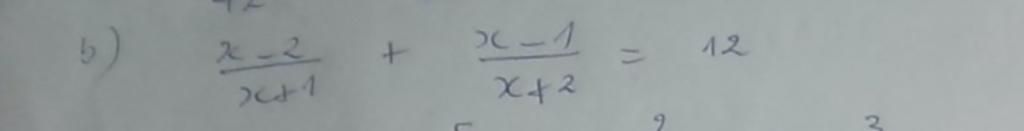 b) \frac{x-2}{x+1} + \frac{x-1}{x+2} = 12